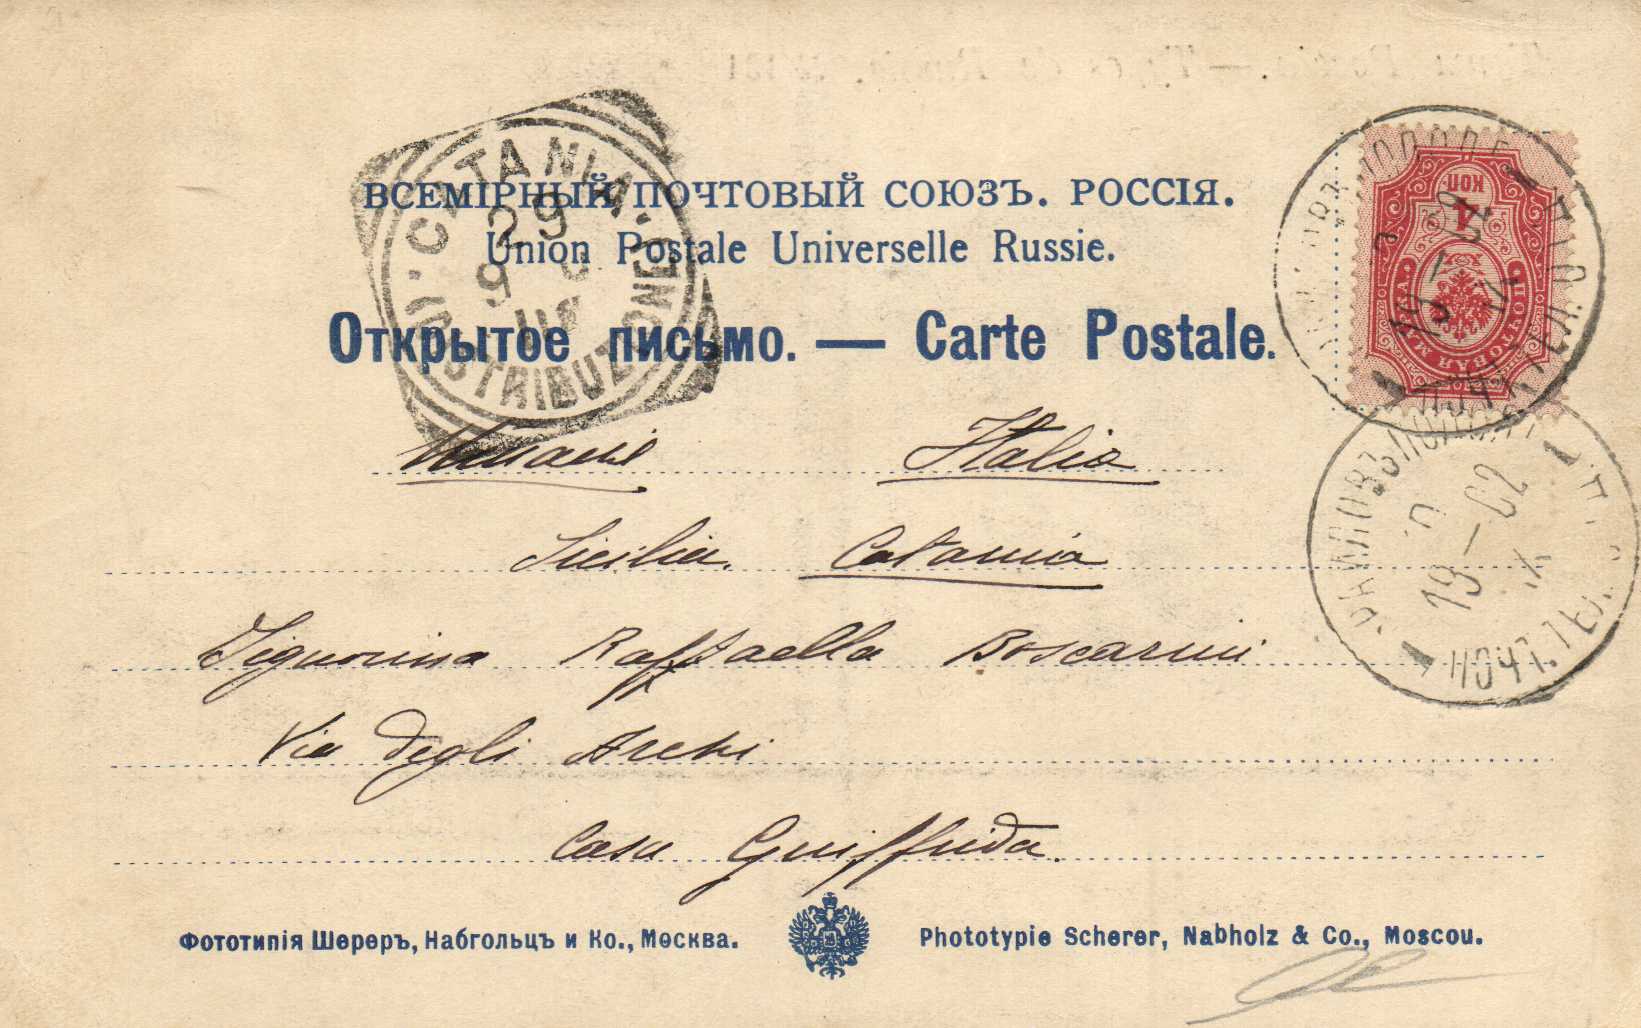 ВСЕМІРНЫЙ ПОЧТОВЫЙ СОЮЗЪ. РОССІЯ.
Union Postale Universelle Russie.
Открытое письмо. — Carte Postale.
CATANIA
29
9
DISTRIBUZIONE
4
КОП
ПОЧТОВАЯ МАРКА
Italia
Sicilia. Catania
Signorina Raffaella Boscarini
Via degli Archi
Casa Guiffrida.
ХАРЬКОВЪ
19 — 02
ПОЧТ. ТЕЛ.
1
Фототипія Шереръ, Набгольцъ и Ко., Москва.
Phototypie Scherer, Nabholz & Co., Moscou.